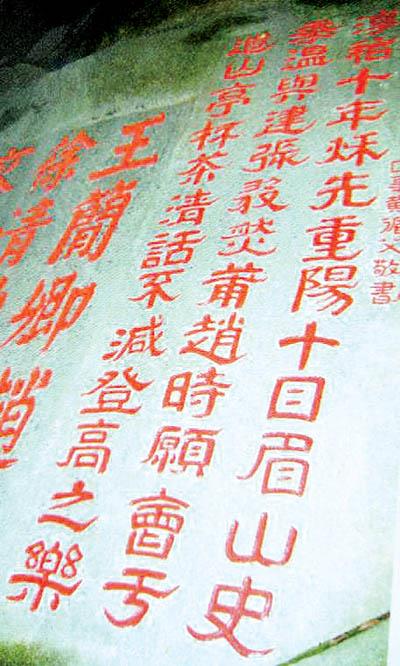 敬書
淳祐十年秌先重陽十日眉山史
季溫與建張發焚莆趙時願會于
道山亭杯茶清話不減登高之樂
王蘭卿趙
徐清